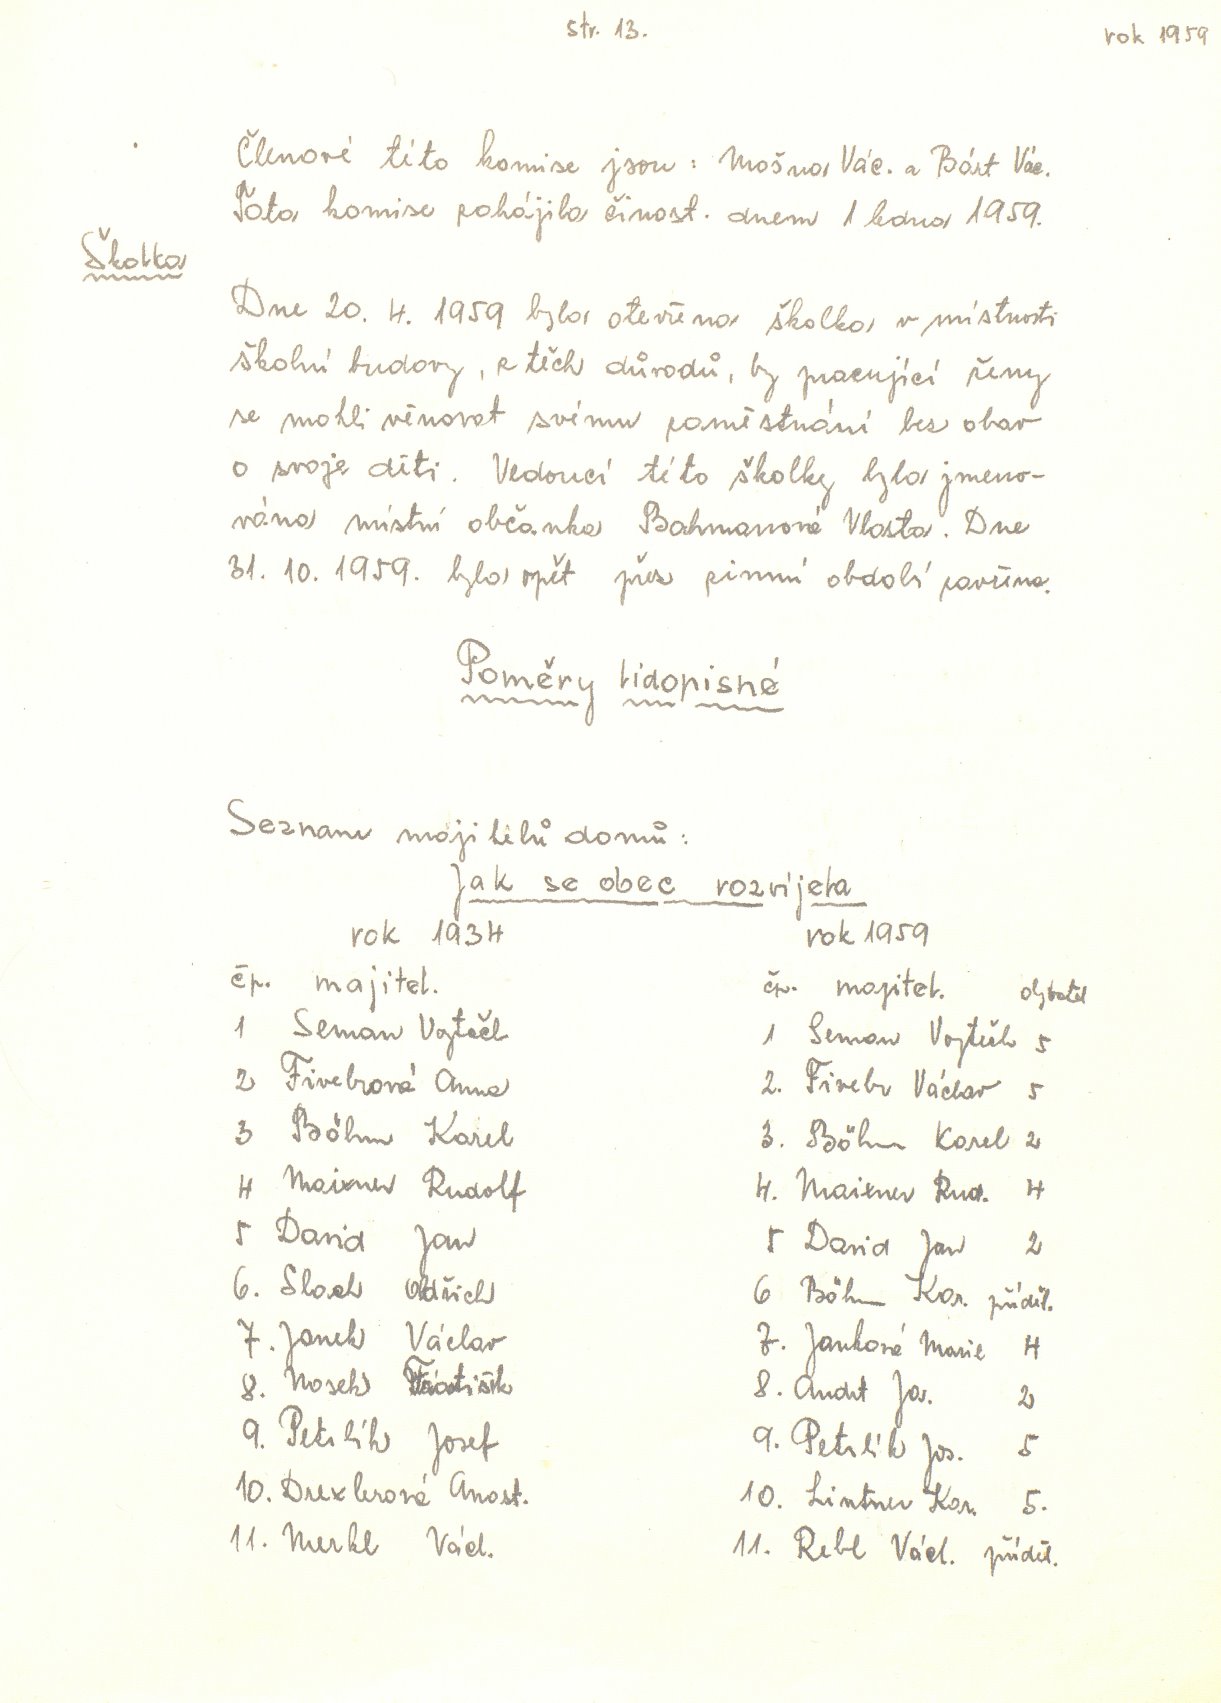 str. 13.
rok 1959
Členové této komise jsou: Mošna Vác. a Bárt Vác.
Tato komise zahájila činost. dnem 1 ledna 1959.
Školka
Dne 20. 4. 1959 byla otevřena školka v místnosti
školní budovy, z těch důvodů, by pracující ženy
se mohli věnovat svému zaměstnání bez obav
o svoje děti. Vedoucí této školky byla jmeno-
vána místní občanka Bahmanová Vlasta. Dne
31. 10. 1959. byla opět přes zimní období zavřena.
Poměry lidopisné
Seznam majitelů domů:
Jak se obec rozvíjela
rok 1934 rok 1959
čp. majitel. čp. majitel. obyvatel
1 Seman Vojtěch 1 Seman Vojtěch 5
2 Fivebrová Anna 2. Fivebr Václav 5
3 Böhm Karel 3. Böhm Karel 2
4 Maixner Rudolf 4. Maixner Rud. 4
5 David Jan 5 David Jan 2
6. Slach Oldřich 6 Böhm Kar. příděl.
7. Janek Václav 7. Janková Marie 4
8. Nosek František 8. Andrt Jos. 2
9. Petrlík Josef 9. Petrlík Jos. 5
10. Drexlerová Anast. 10. Lintner Kar. 5.
11. Merkl Václ. 11. Rebl Václ. příděl.